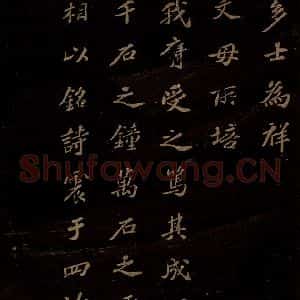 多士為祥
文母所培
我膺受之篤其成
千石之鐘萬石之
相以銘詩于四
Shufawang.CN